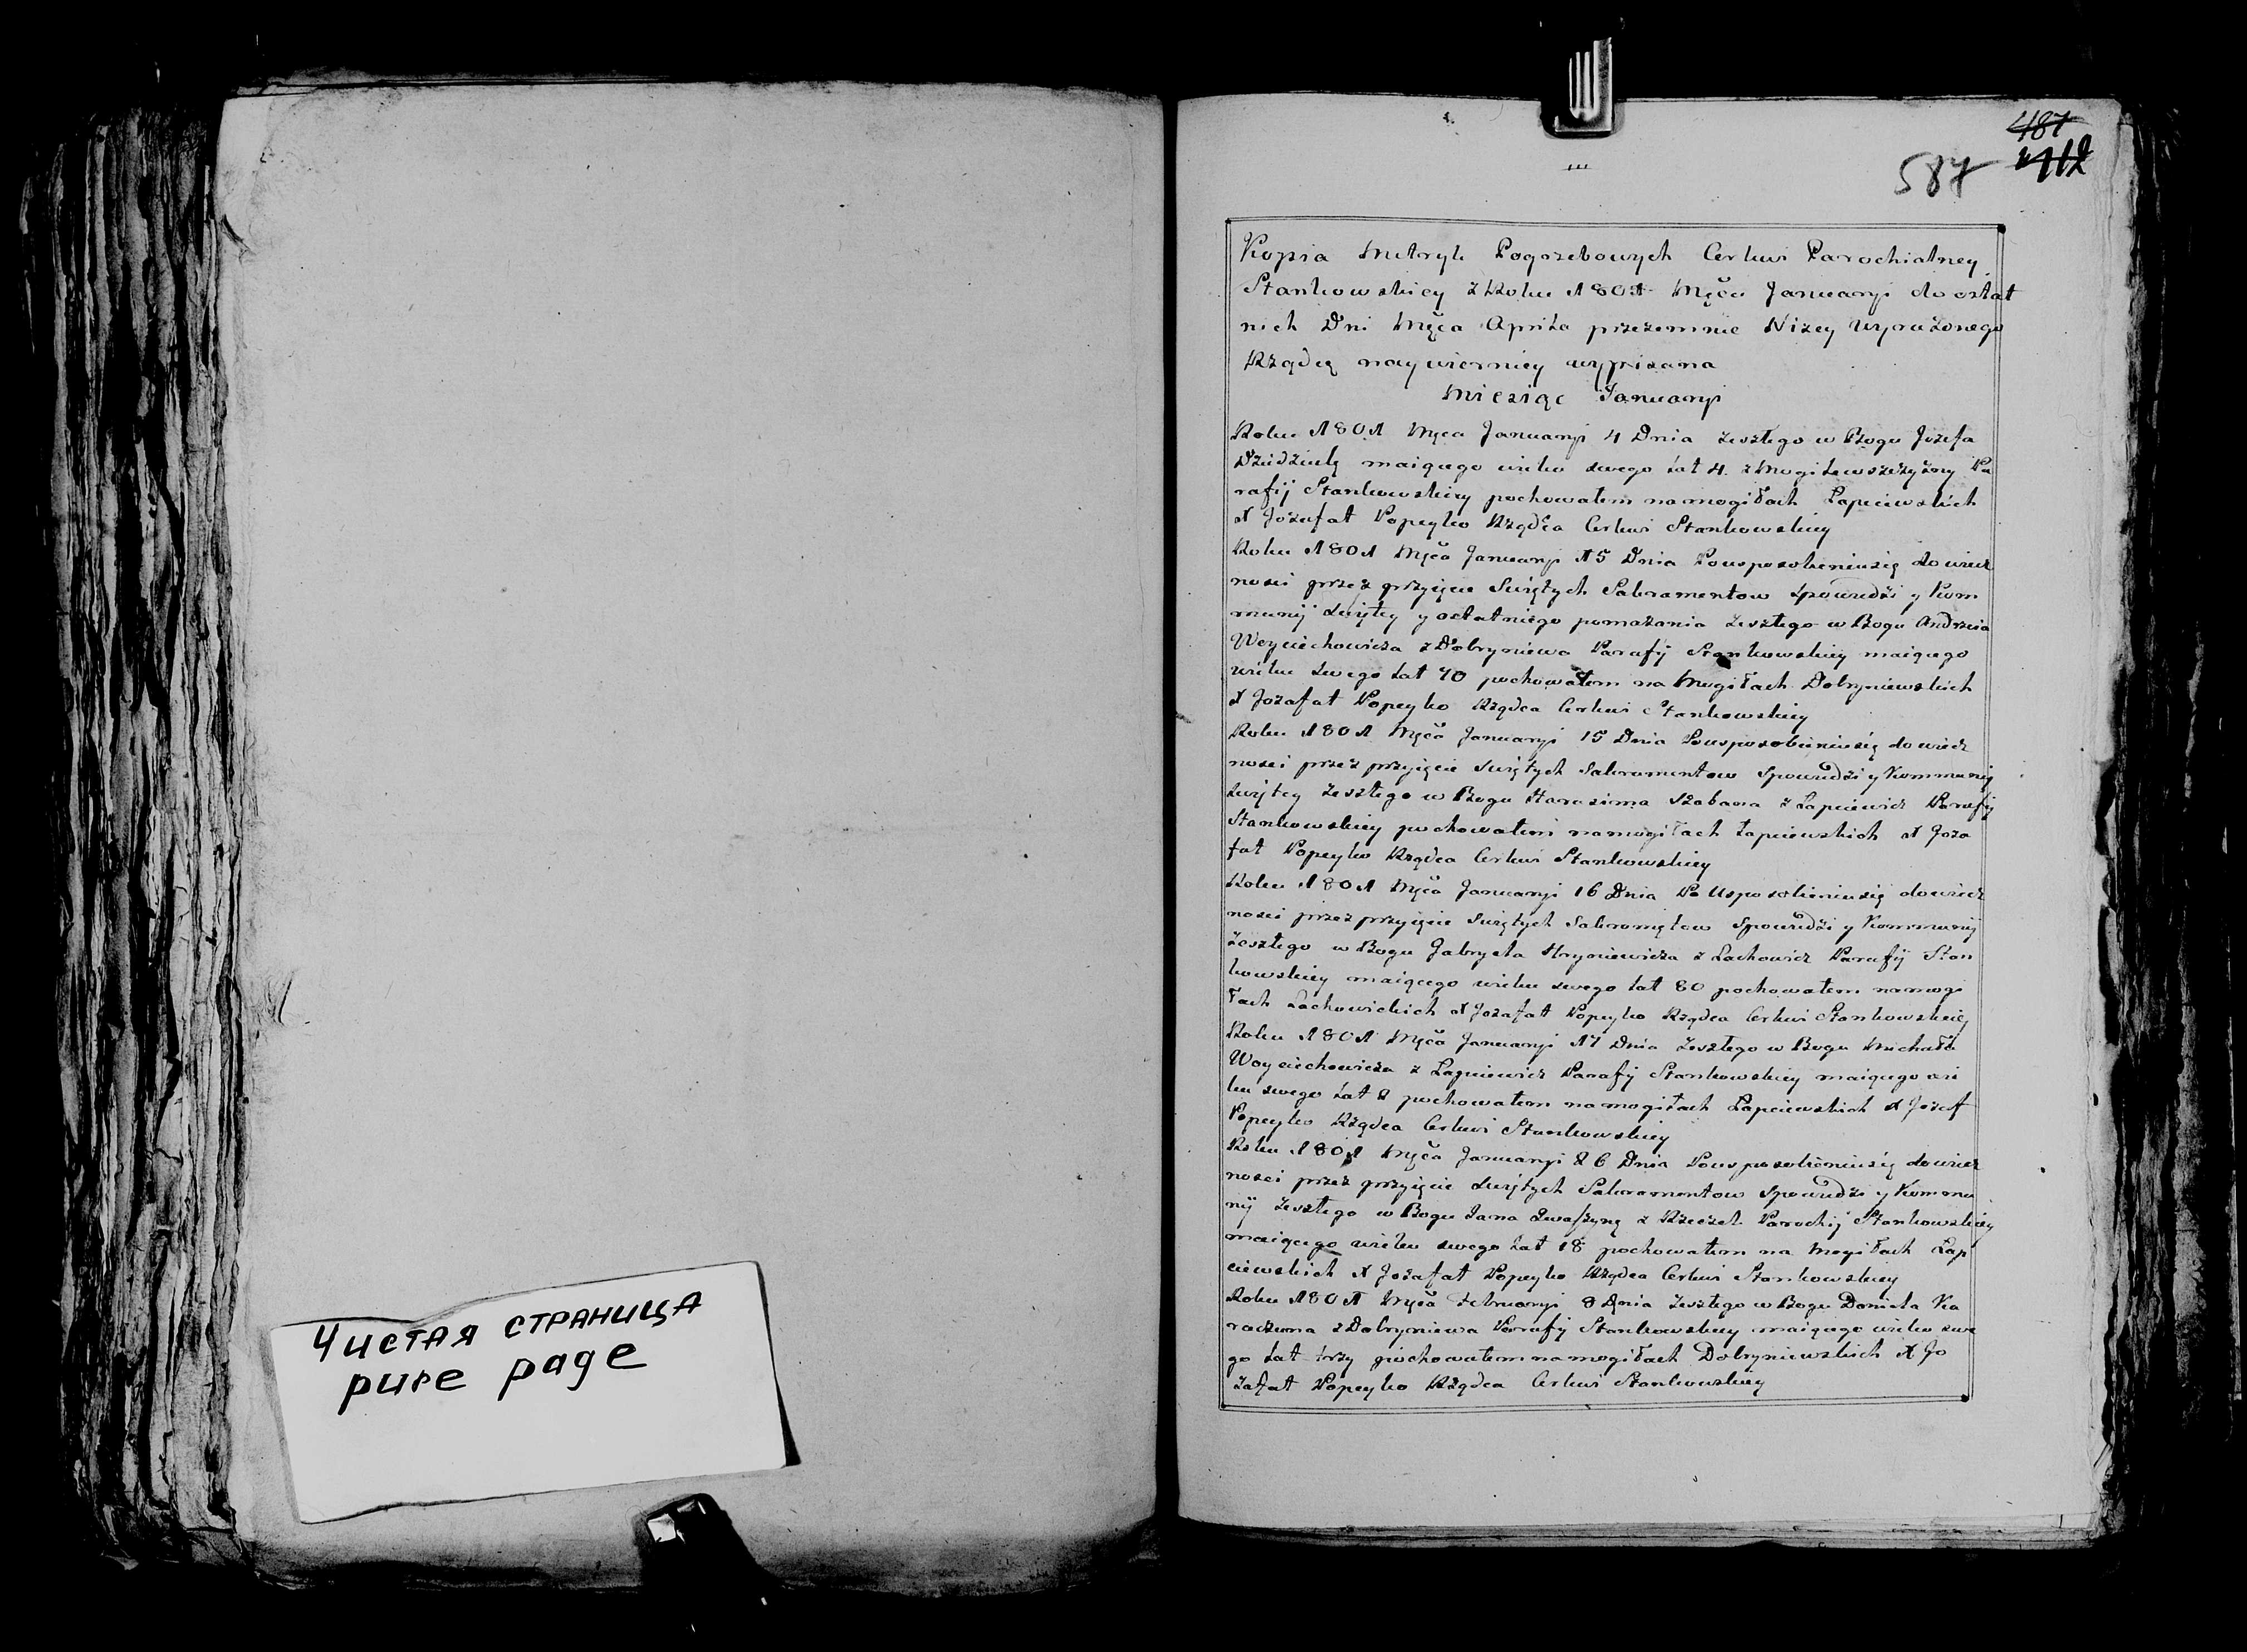 Чистая страница
pure page
487
587
Kopia Metryk Pogrzebowych Cerkwi Parochialney
Stankowskiey z Roku 1801 Męca Januaryi do ostat
nich Dni Męca Aprila przezemnie Niżey Wyrażonego
Rządcę naywierniey wypisana
Miesiąc Januaryi
Roku 1801 Męca Januaryi 4 Dnia zeszłego w Bogu Jozefa
maiącego wieku swego lat 4. z Pa
rafij Stankowskiey pochowałem na mogiłach Łapciewskich
X Jozafat Popeyko Rządca Cerkwi Stankowskiey
Roku 1801 Męca Januaryi 15 Dnia Pousposobieniusię do wiecz
nosci przez przyięcie Swiętych Sakramentow Spowiedzi y Kom
munij Swiętey y ostatniego pomazania zeszłego w Bogu Andrzeia
Woyciechowicza z Dobryniewa Parafij Stankowskiey maiącego
wieku swego lat 70 pochowałem na Mogiłach Dobryniewskich
X Jozafat Popeyko Rządca Cerkwi Stankowskiey
Roku 1801 Męca Januaryi 15 Dnia Pousposobieniusię do wiecz
nosci przez przyięcie Swiętych Sakramentow Spowiedzi y Kommunij
Swiętey zeszłego w Bogu Harasima z Łapciewicz Parafij
Stankowskiey pochowałem na mogiłach Łapciewskich X Joza
fat Popeyko Rządca Cerkwi Stankowskiey
Roku 1801 Męca Januaryi 16 Dnia Po Usposobieniusię dowiecz
nosci przez przyięcie Swiętych Sakramętow Spowiedzi y Kommunij
zeszłego w Bogu Gabryela Hryniewicza z Lachowicz Parafij Stan
kowskiey maiącego wieku swego lat 80 pochowałem na mogi
łach Lachowickich X Jozafat Popeyko Rządca Cerkwi Stankowskiey
Roku 1801 Męca Januaryi 17 Dnia zeszłego w Bogu Michała
Woyciechowicza z Łapciewicz Parafij Stankowskiey maiącego wie
ku swego lat 2 pochowałem na mogiłach Łapciewskich X Jozaf
Popeyko Rządca Cerkwi Stankowskiey
Roku 1801 Męca Januaryi 26 Dnia Pousposobieniusię dowiecz
nosci przez przyięcie Swiętych Sakramentow Spowiedzi y Kommu
nij zeszłego w Bogu Jana z Parochij Stankowskiey
maiącego wieku swego lat 18 pochowałem na Mogiłach Łap
ciewskich X Jozafat Popeyko Rządca Cerkwi Stankowskiey
Roku 1801 Męca Februaryi 8 Dnia zeszłego w Bogu Daniela Ka
raczuna z Dobryniewa Parafij Stankowskiey maiącego wieku swe
go lat trzy pochowałem na mogiłach Dobryniewskich X Jo
zafat Popeyko Rządca Cerkwi Stankowskiey